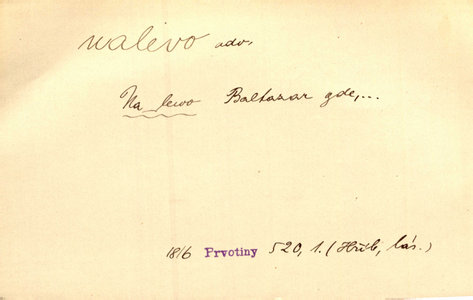 nalevo adv.
Na lewo Baltazar gde,...
1816 Prvotiny 520, 1. (Hříb, lás.)